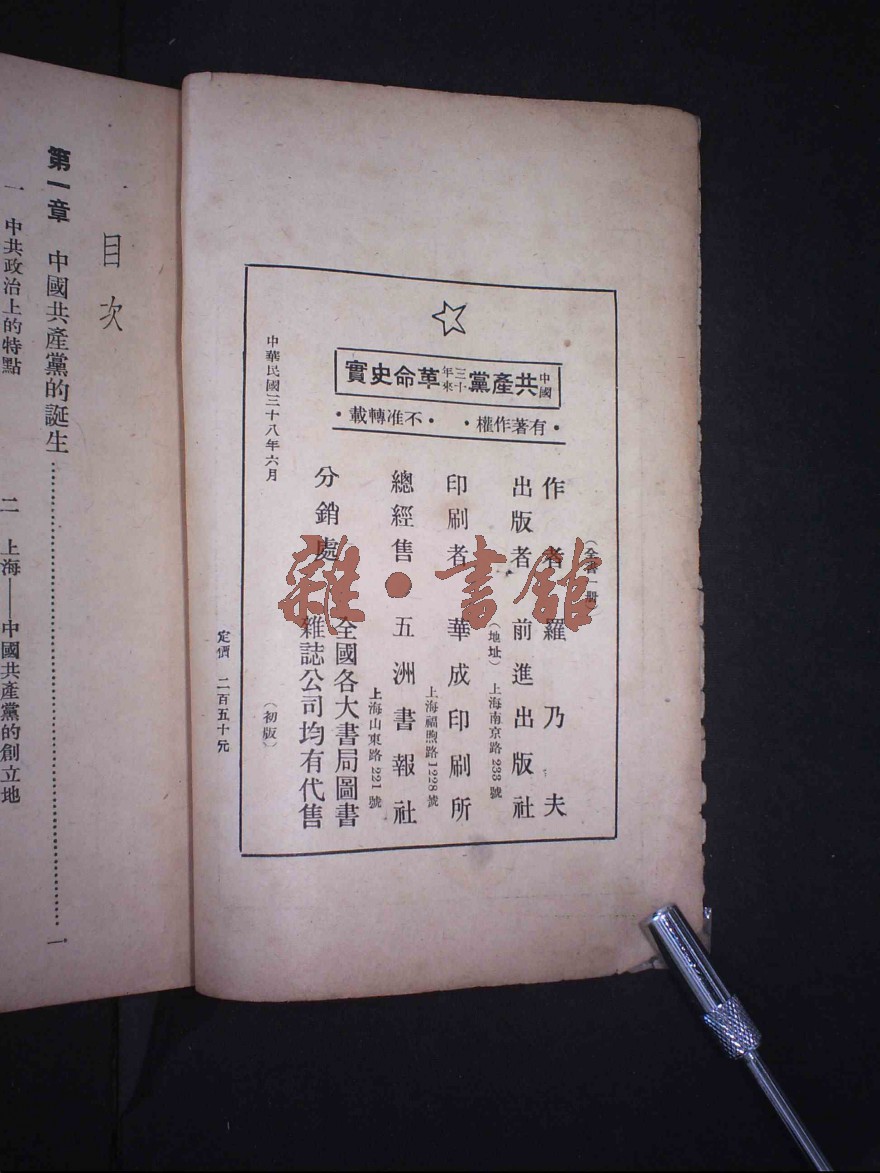 中國共產黨三十年來革命史實
·有著作權· ·不准轉載·
(全書一冊)
作者 羅乃夫
出版者 前進出版社
(地址) 上海南京路233號
印刷者 華成印刷所
上海福煦路1228號
總經售 五洲書報社
上海山東路221號
分銷處 全國各大書局圖書
雜誌公司均有代售
中華民國三十八年六月
(初版)
定價 二百五十元
雜·書館
目次
第一章 中國共產黨的誕生……一
一 中共政治上的特點 二 上海——中國共產黨的創立地